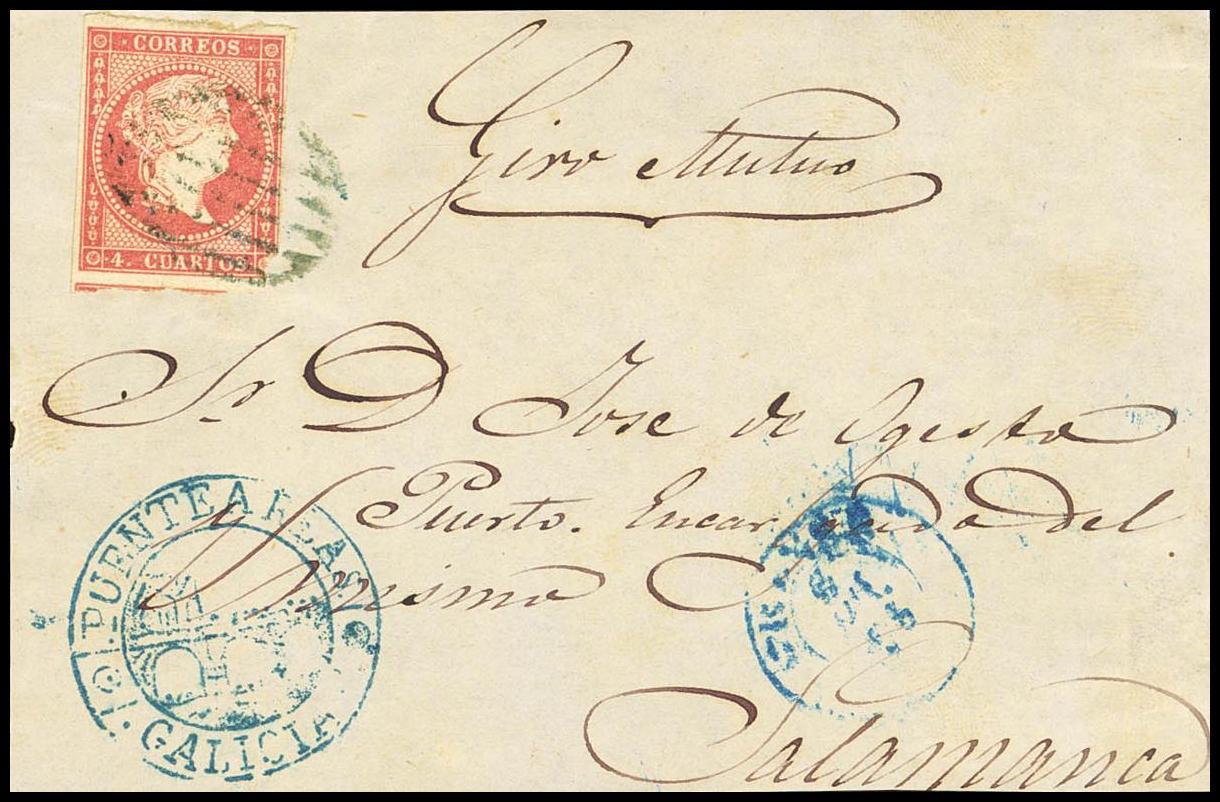 CORREOS
4. CUARTOS
Giro Mutuo
Sr D Jose de Ogesto
y Puerto. Encargado del
mismo
Salamanca
PUENTEAREAS
GALICIA